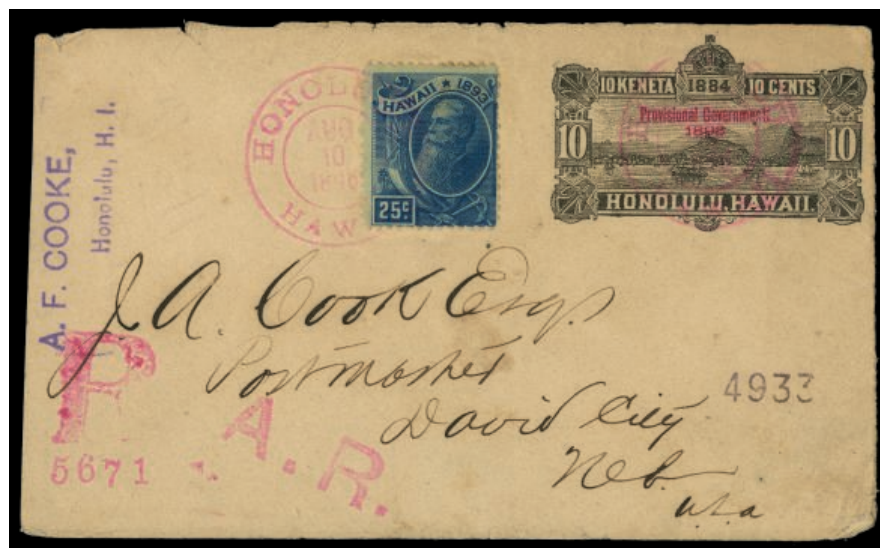 A. F. COOKE,
Honolulu, H. I.
AUG
10
HAWAII ★ 1893
25¢
10 KENETA 1884 10 CENTS
Provisional Government
1893
10 10
HONOLULU, HAWAII.
J. A. Cook Esq.
Postmaster
David City
Neb.
U.S.a
4933
R
5671
A. R.